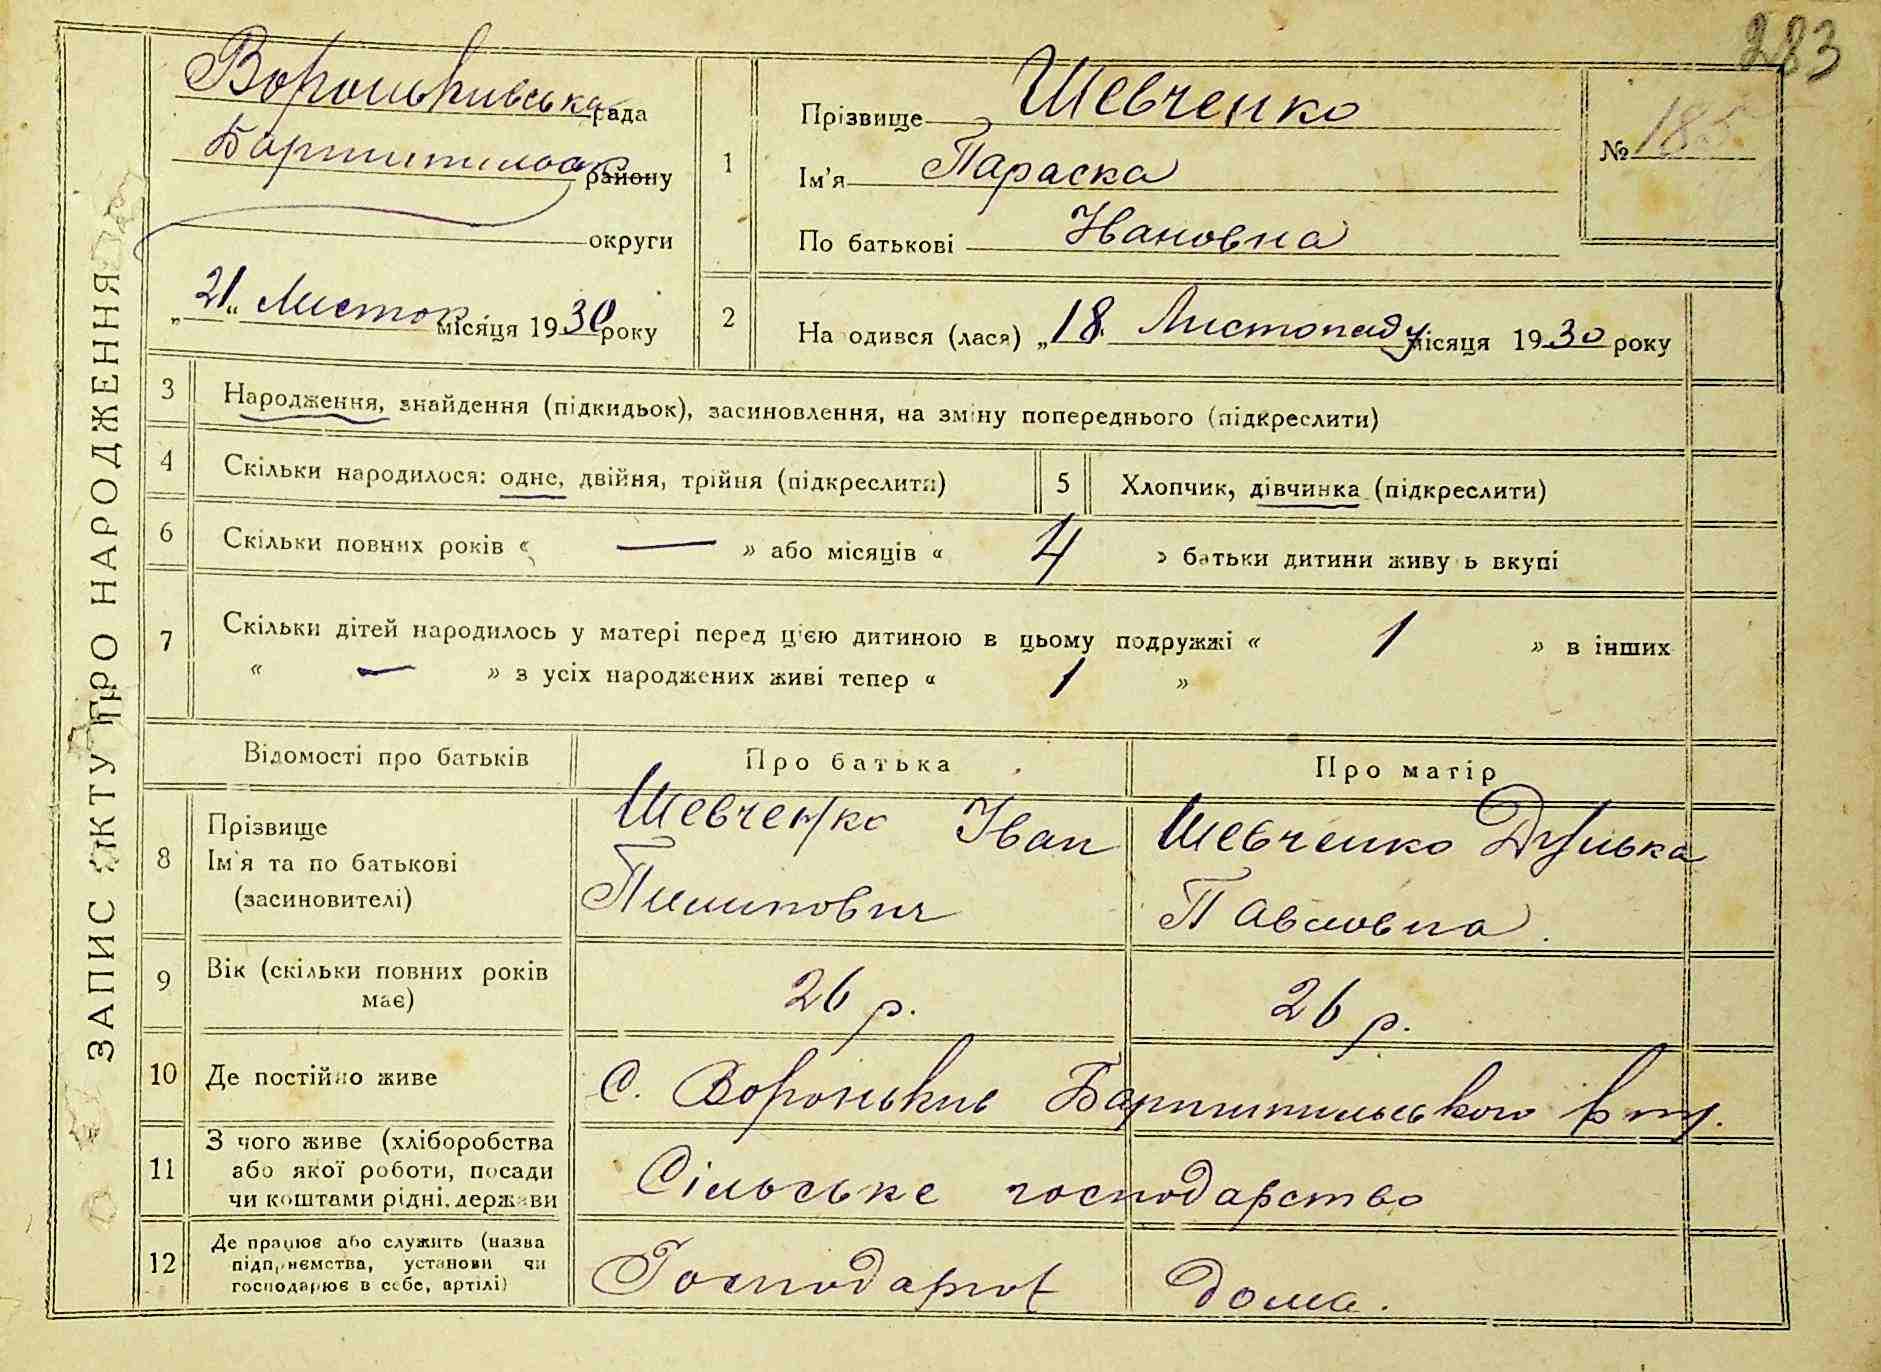 283
Вороньківська рада
Бориспільськ району
округи
„21“ Листоп місяця 1930 року
1
Прізвище Шевченко
Ім'я Параска
По батькові Івановна
№ 185
2
На одився (лася) „18 Листопаду місяця 1930 року
ЗАПИС АКТУ ПРО НАРОДЖЕННЯ
3 Народження, знайдення (підкидьок), засиновлення, на зміну попереднього (підкреслити)
4 Скільки народилося: одне, двійня, трійня (підкреслити)
5 Хлопчик, дівчинка (підкреслити)
6 Скільки повних років « — » або місяців « 4 » батьки дитини живу ь вкупі
7 Скільки дітей народилось у матері перед ц'єю дитиною в цьому подружжі « 1 » в інших
« — » з усіх народжених живі тепер « 1 »
Відомості про батьків Про батька Про матір
8 Прізвище
Ім'я та по батькові
(засиновителі)
Шевченко Іван
Пилипович
Шевченко
Павловна.
9 Вік (скільки повних років
має)
26 р. 26 р.
10 Де постійно живе С. Вороньків Бориспільського
11 З чого живе (хліборобства
або якої роботи, посади
чи коштами рідні, держави
Сільське господарство
12 Де працює або служить (назва
підприємства, установи чи
господарює в себе, артілі)
Господарює дома.